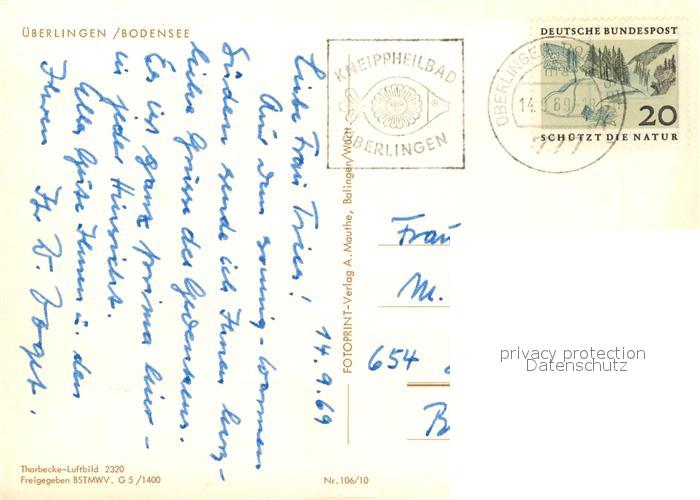 ÜBERLINGEN /BODENSEE
KNEIPPHEILBAD
ÜBERLINGEN
ÜBERLINGEN
14.9.69
DEUTSCHE BUNDESPOST
20
SCHÜTZT DIE NATUR
14.9.69
Liebe Frau Trier!
Aus dem sonnig-warmen
Süden sende ich Ihnen herz-
liche Grüsse des Gedenkens.
Es ist ganz prima hier –
in jeder Hinsicht.
Alles Gute Ihnen u. den
Ihren Ihr W. Voget.
FOTOPRINT-Verlag A. Mauthe, Balingen/Württ.
Frau
M.
654
B
privacy protection
Datenschutz
Thorbecke-Luftbild 2320
Freigegeben BSTMWV. G 5 /1400
Nr. 106/10